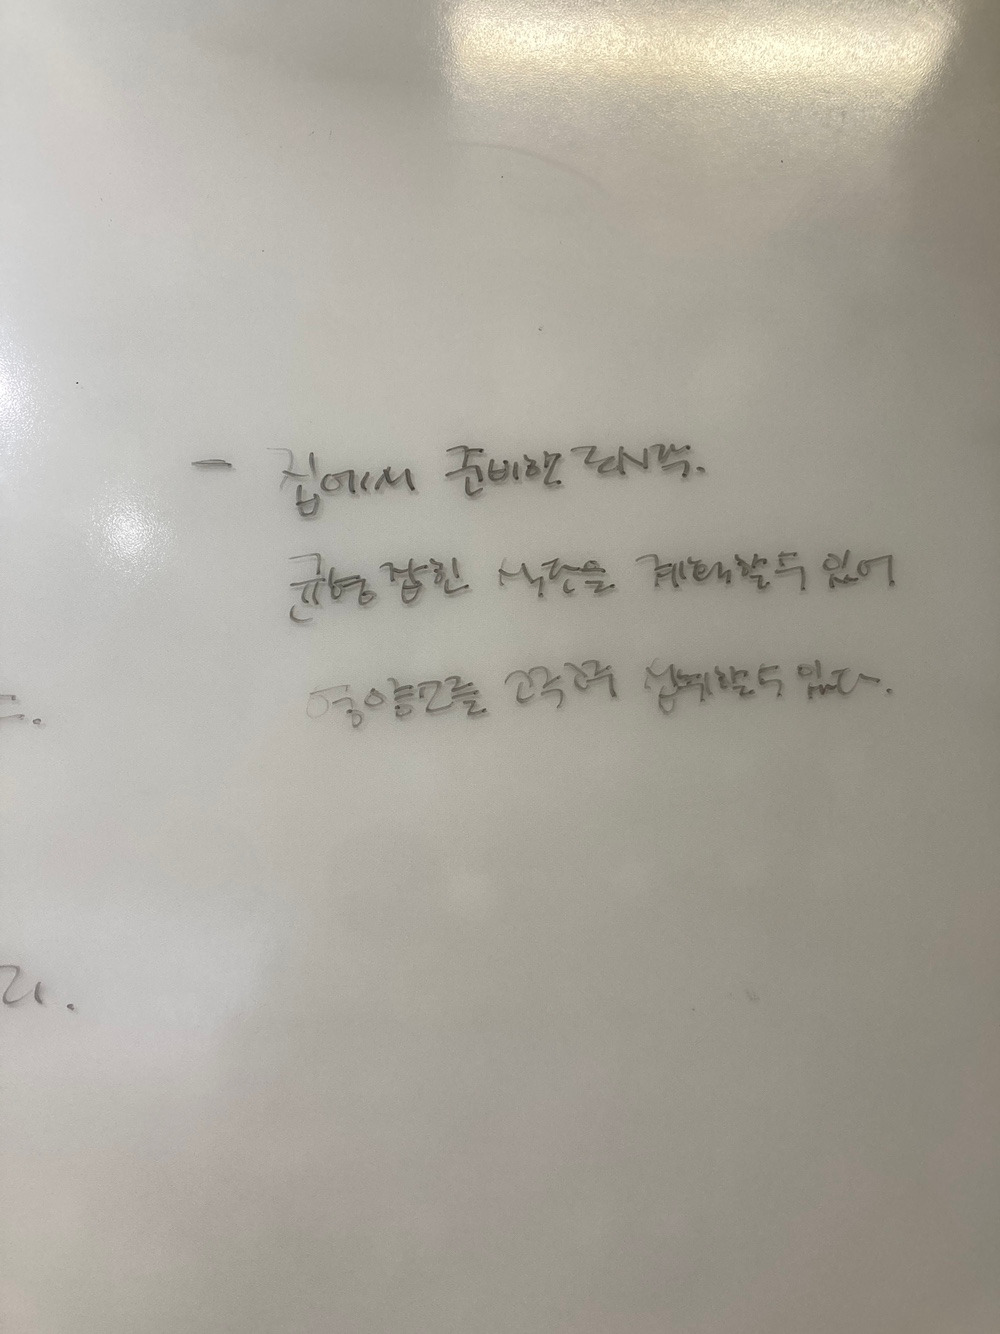 - 집에서 준비한 도시락.
균형 잡힌 식단을 계획할 수 있어
영양소를 고루고루 섭취할 수 있다.
리.